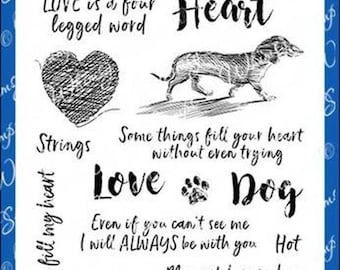 LOVE is a four
legged word
Heart
Strings
Some things fill your heart
without even trying
fill my heart
Love
Dog
Even if you can't see me
I will ALWAYS be with you
Hot